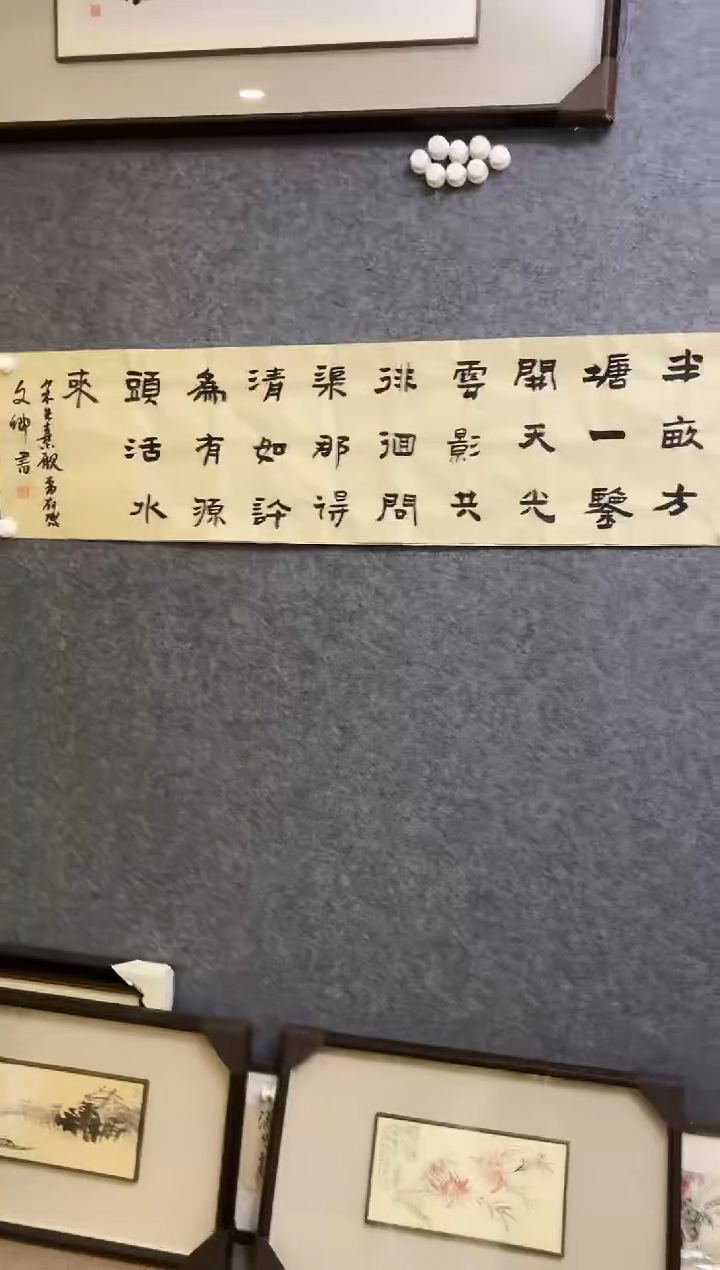 半畝方
塘一鑒
開天光
雲影共
徘徊問
渠那得
清如許
為有源
頭活水
來
宋朱熹觀書有感
文卿書